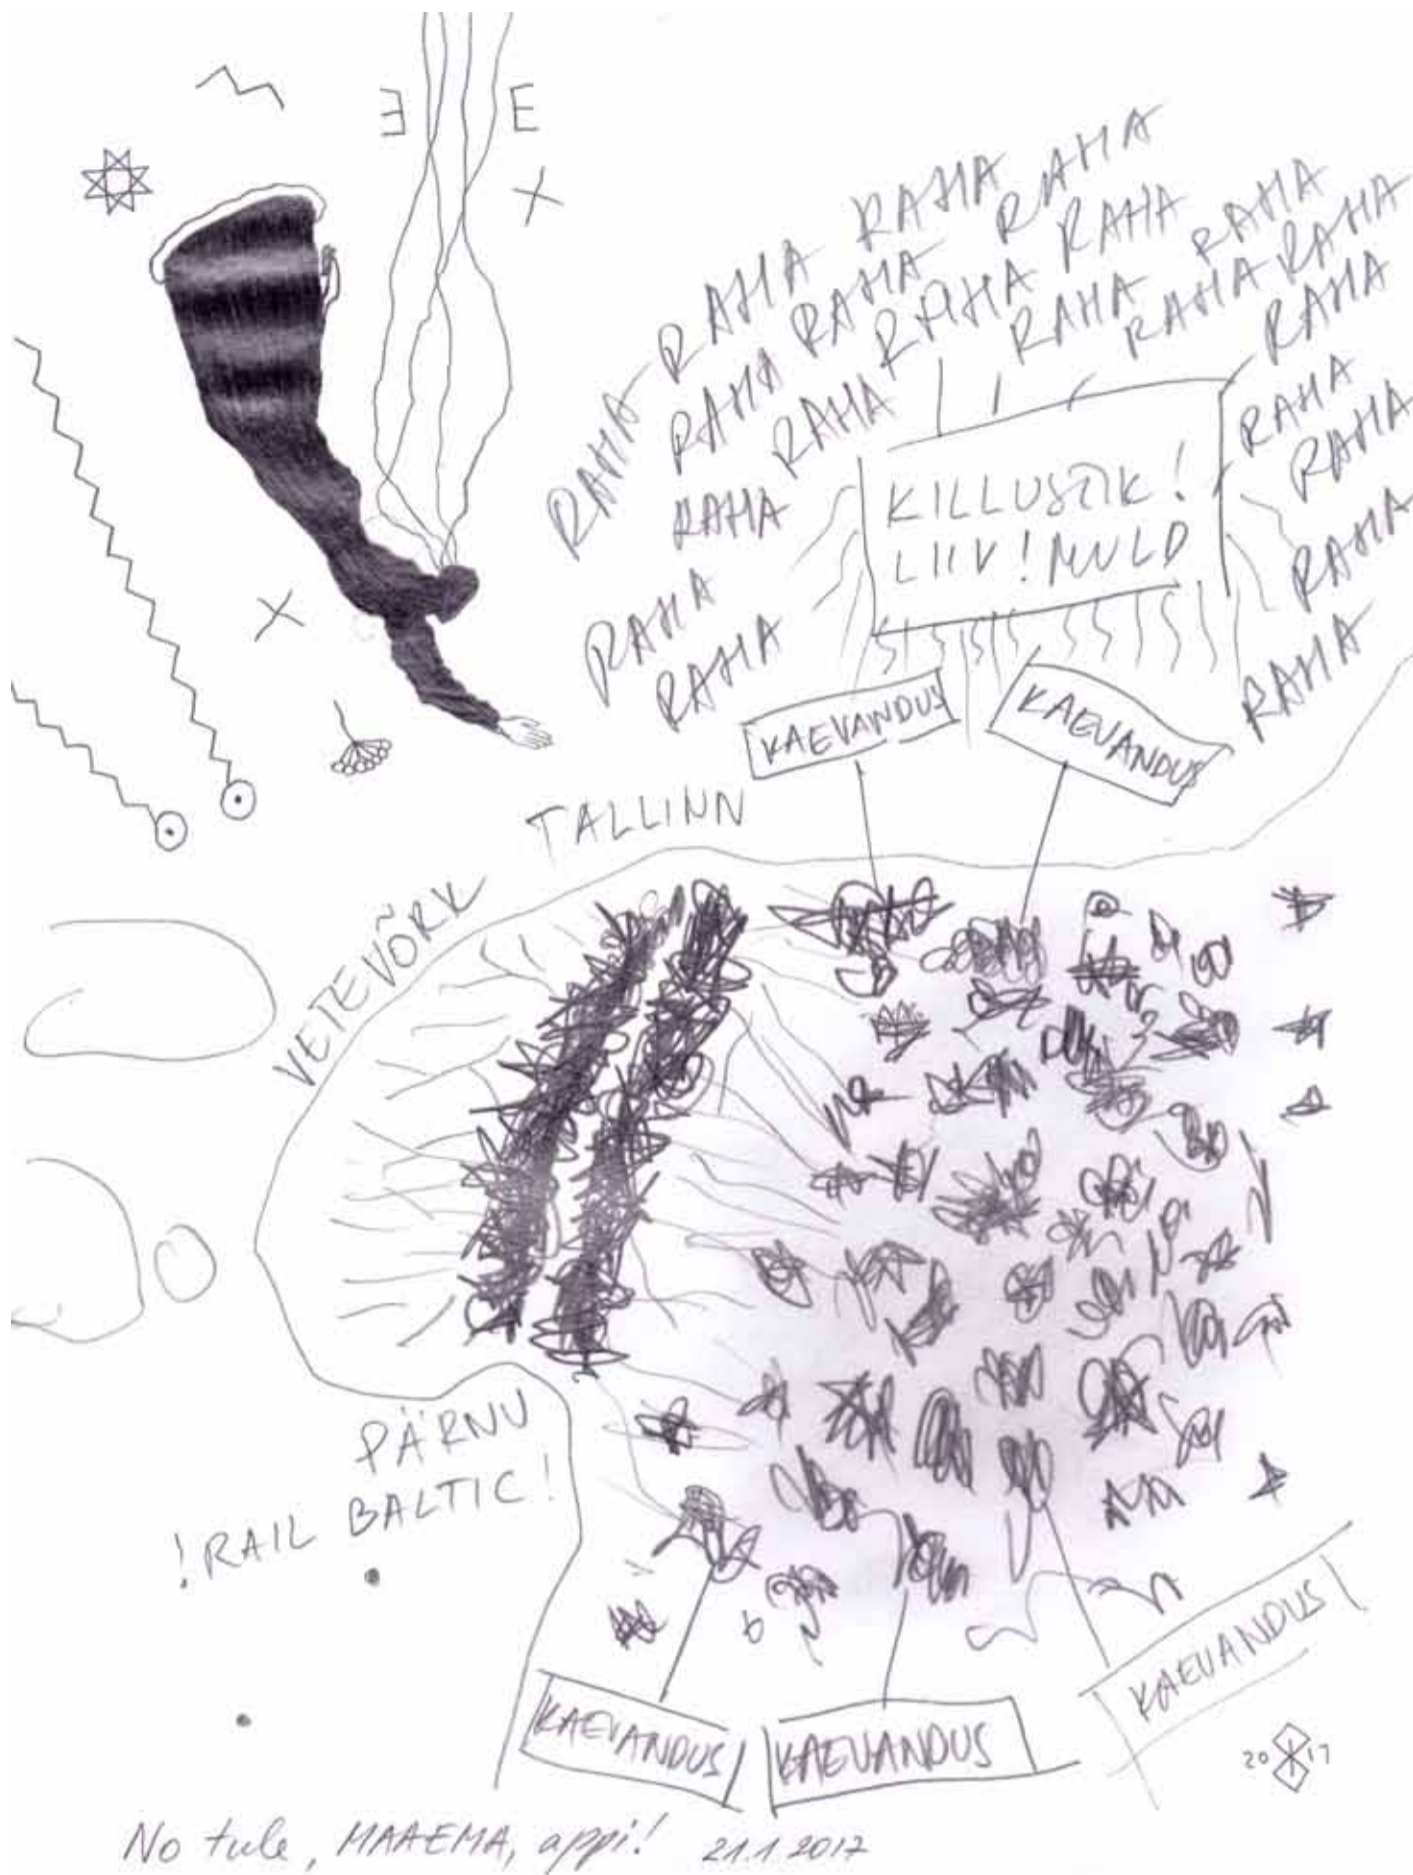 Ǝ E
X
RAHA RAHA RAHA RAHA
RAHA RAHA RAHA RAHA
RAHA RAHA RAHA RAHA RAHA RAHA
RAHA
RAHA
RAHA
RAHA
RAHA
RAHA
RAHA
KILLUSTIK!
LIIV! MULD
X
KAEVANDUS
KAEVANDUS
TALLINN
VETEVÕRK
PÄRNU
!RAIL BALTIC!
KAEVANDUS
KAEVANDUS
KAEVANDUS
20 17
No tule, MAAEMA, appi! 21.1.2017